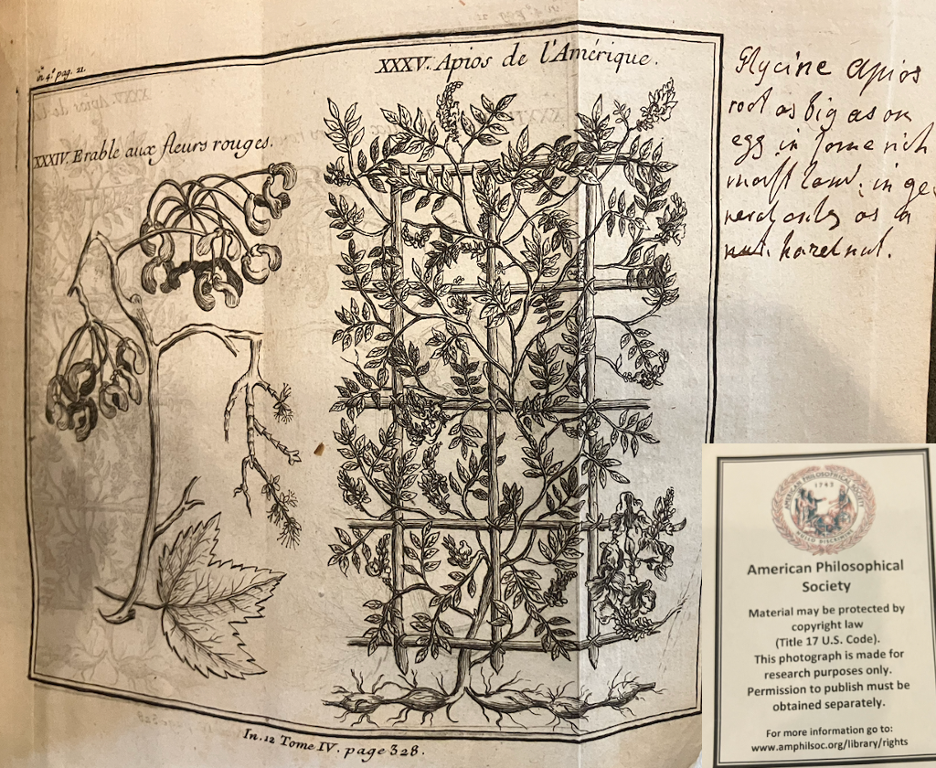 in 4.º pag. 21.
XXXIV. Erable aux fleurs rouges.
XXXV. Apios de l'Amérique.
In. 12 Tome IV. page 328.
Glycine Apios
root as big as an
egg in some rich
moist land, in ge-
neral only as a
nut. hazel nut.
AMERICAN PHILOSOPHICAL SOCIETY
1743
American Philosophical
Society
Material may be protected by
copyright law
(Title 17 U.S. Code).
This photograph is made for
research purposes only.
Permission to publish must be
obtained separately.
For more information go to:
www.amphilsoc.org/library/rights